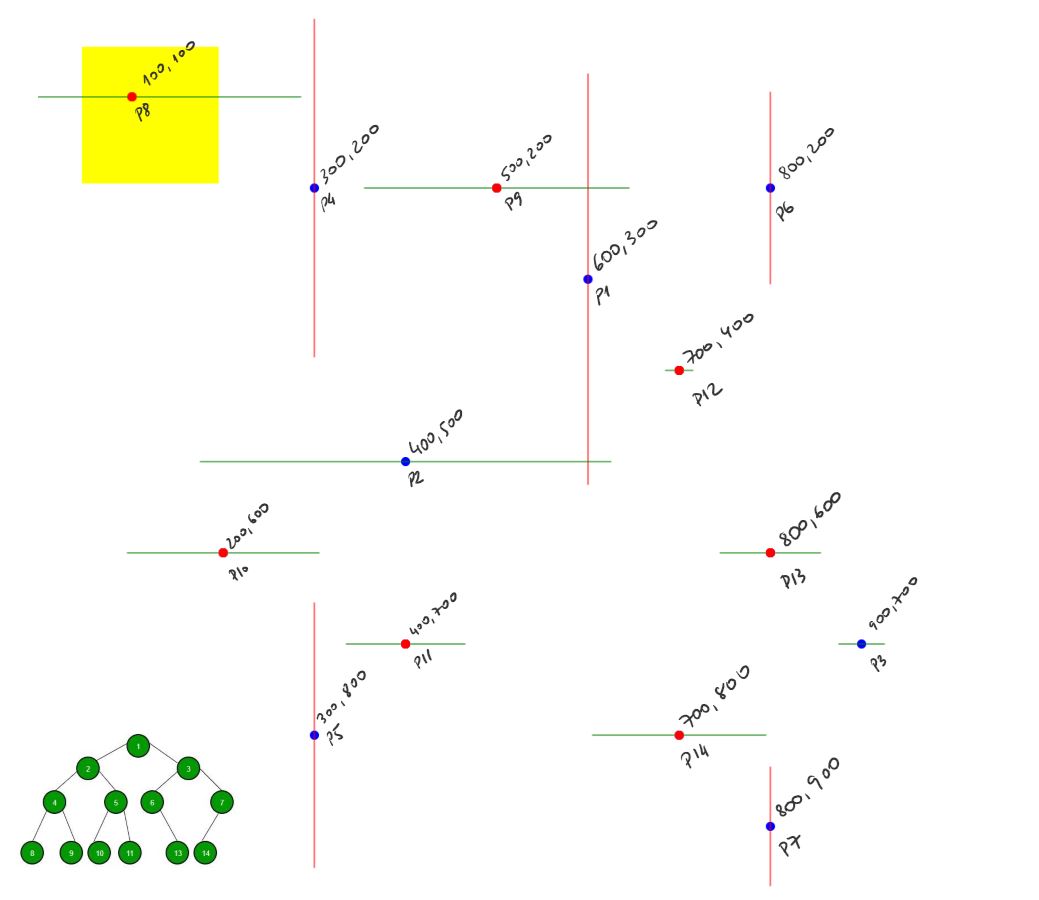 100,100
P8
300,200
P4
500,200
P9
800,200
P6
600,300
P1
700,400
P12
400,500
P2
200,600
P10
800,600
P13
400,700
P11
900,700
P3
300,800
P5
700,800
P14
800,900
P7
1
2
3
4
5
6
7
8
9
10
11
13
14